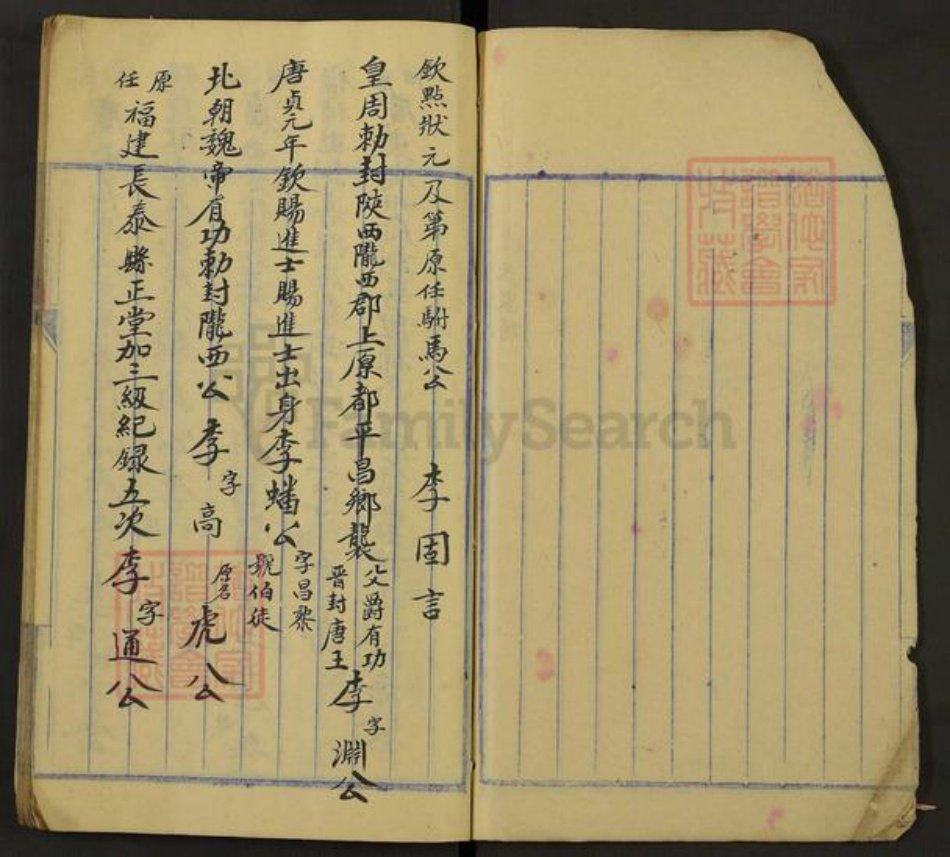 欽點狀元及第原任駙馬公 李固言
皇周勅封陝西隴西郡上原都平昌鄉襲父爵有功晉封唐王李字淵公
唐貞元年欽賜進士賜進士出身李蟠公字昌黎號伯徒
北朝魏帝有功勅封隴西公李字高原名虎公
原任福建長泰縣正堂加三級紀錄五次李字通公
FamilySearch